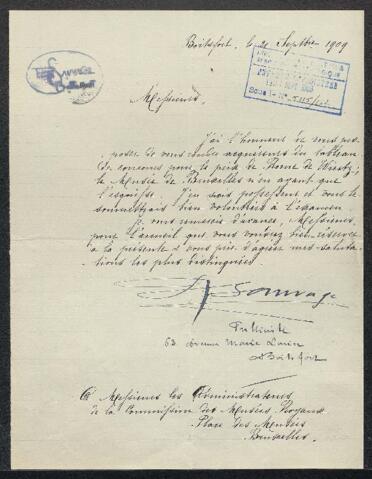 Boitsfort, le 21 Septbre 1909
SAUVAGE
Boitsfort
Messieurs,
J'ai l'honneur de vous pro
poser de vous rendre acquéreurs du tableau
de concours pour le prix de Rome de Wiertz,
le Musée de Bruxelles n'en ayant que
l'esquisse. J'en suis possesseur et vous le
soumettrais bien volontiers à l'examen
Je vous remercie d'avance, Messieurs,
pour l'accueil que vous voudrez bien réserver
à la présente et vous prie d'agréer mes saluta-
tions les plus distinguées
Sauvage
63 Avenue Marie
à Boitsfort
A Messieurs les Administrateurs
de la Commission des Musées Royaux
Place des Musées
Bruxelles.